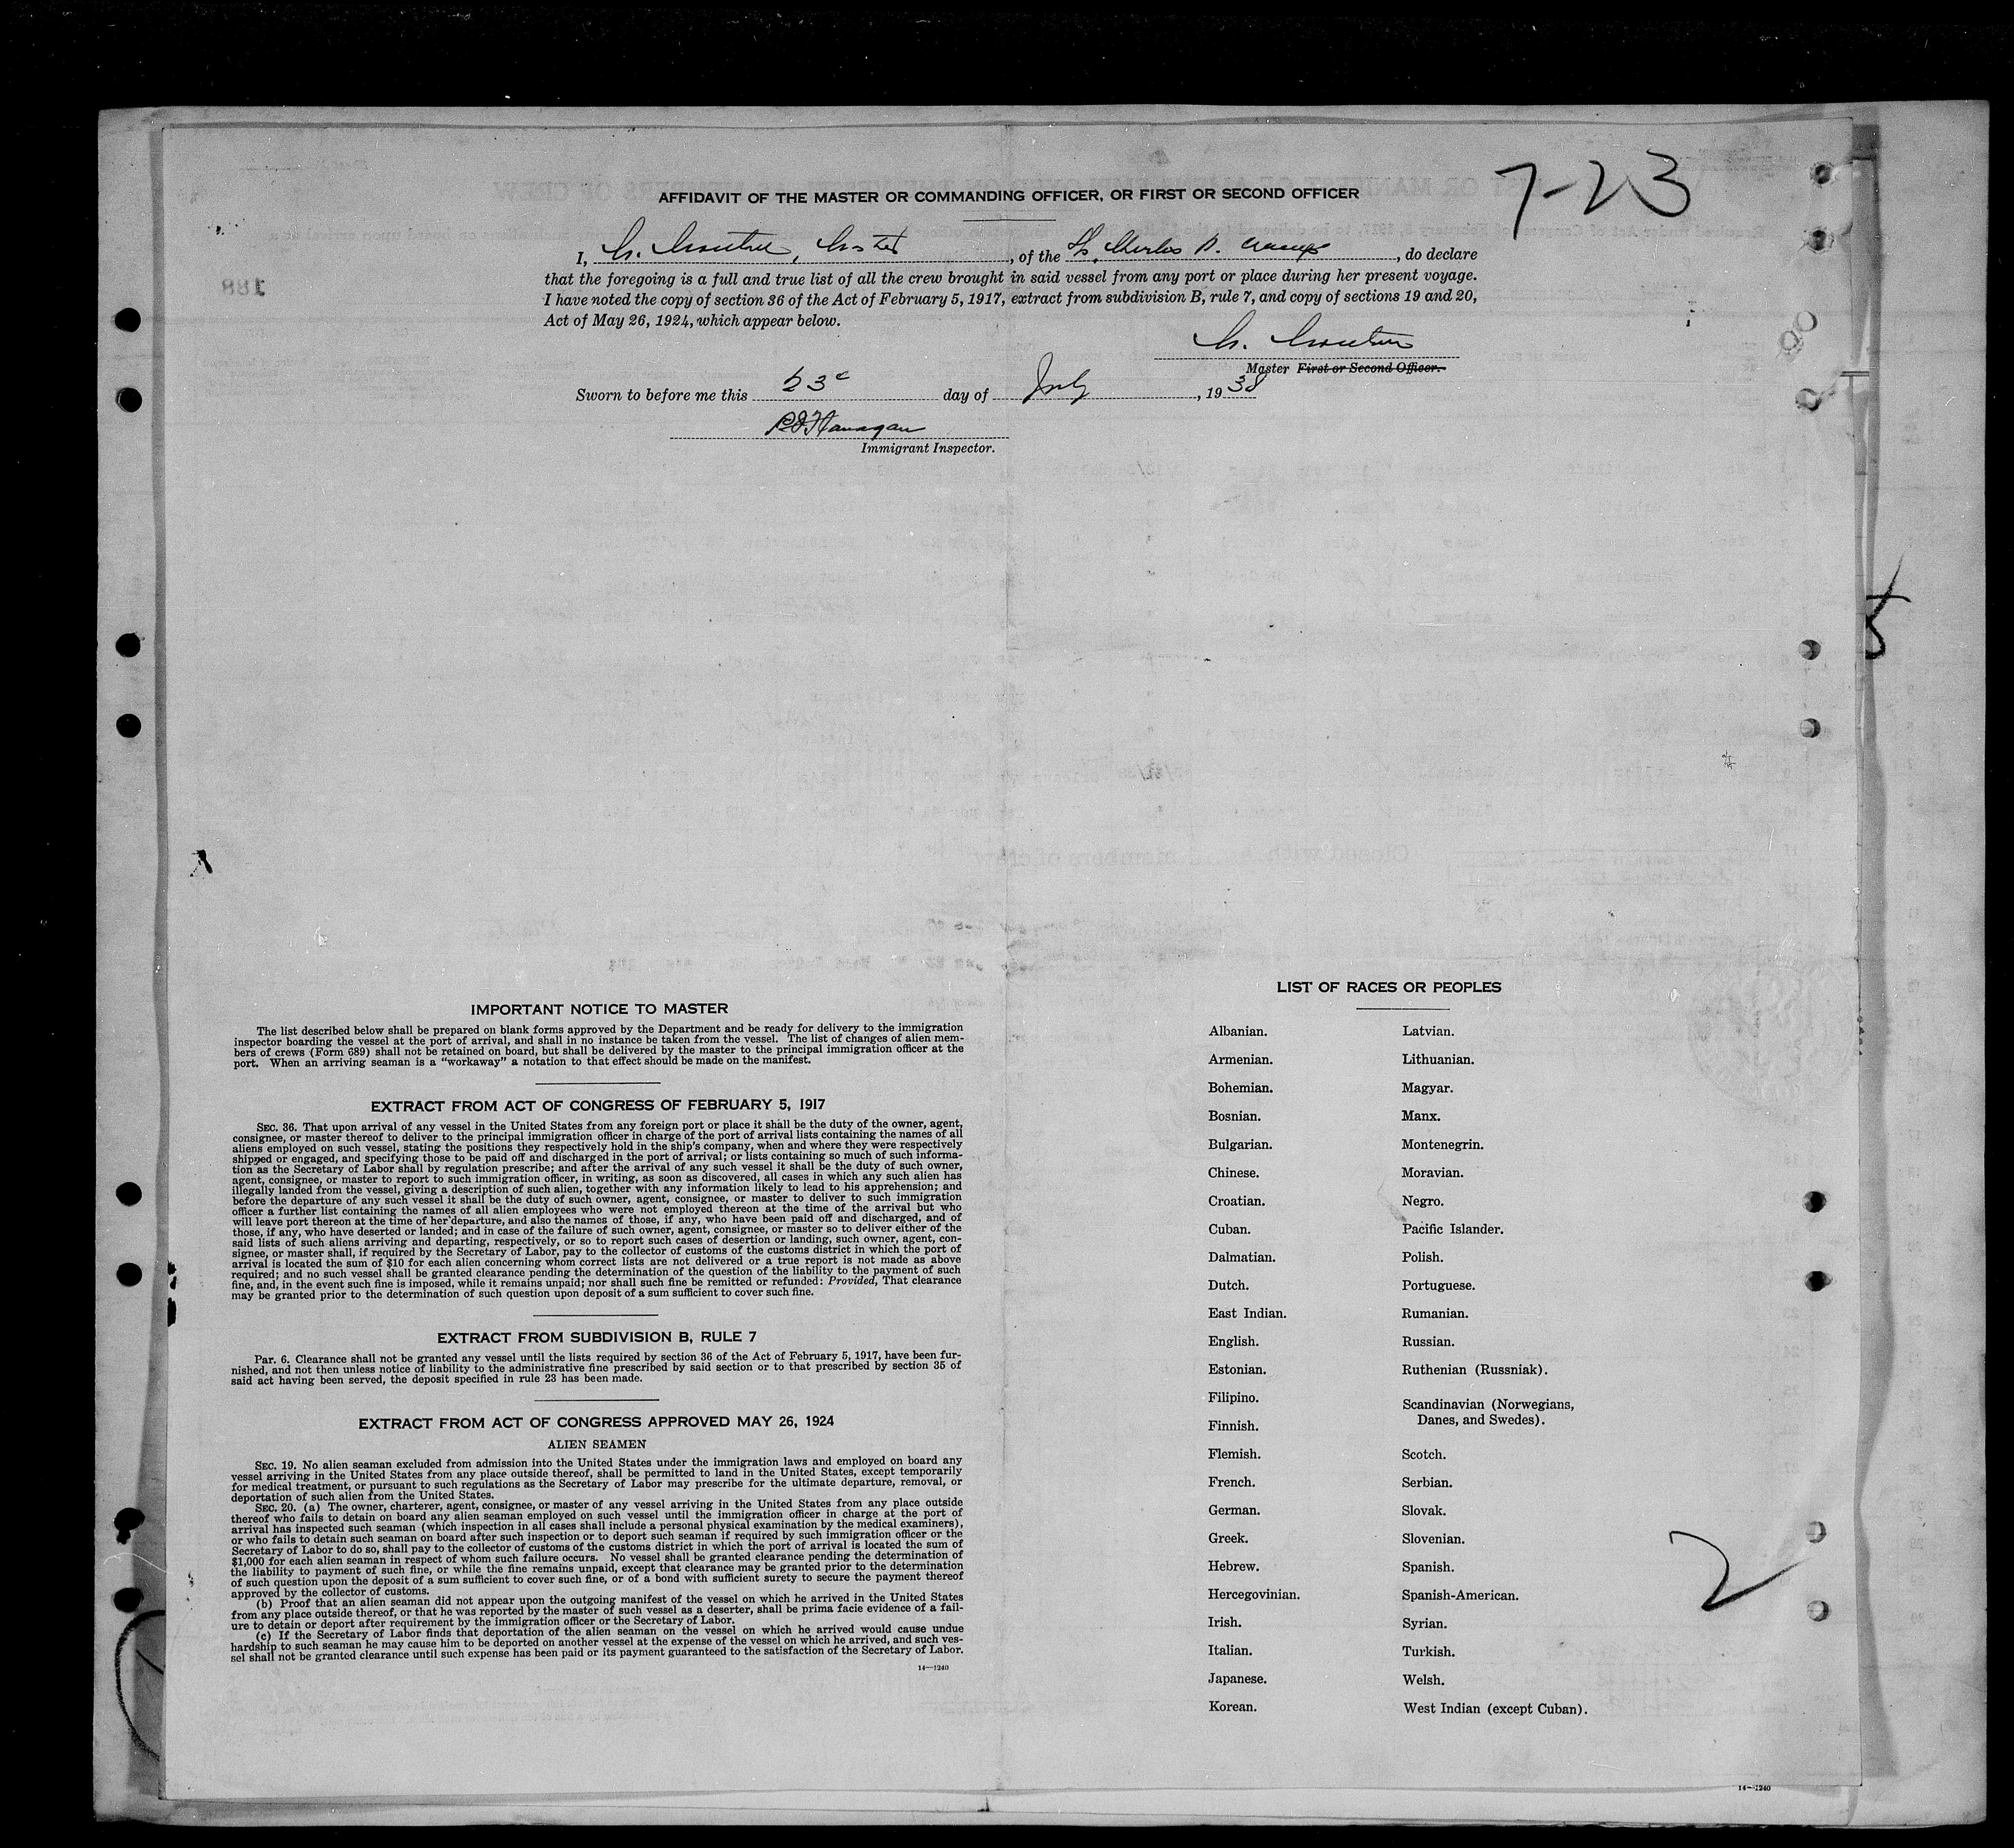 7-23
AFFIDAVIT OF THE MASTER OR COMMANDING OFFICER, OR FIRST OR SECOND OFFICER
I, , of the Charles , do declare
that the foregoing is a full and true list of all the crew brought in said vessel from any port or place during her present voyage.
I have noted the copy of section 36 of the Act of February 5, 1917, extract from subdivision B, rule 7, and copy of sections 19 and 20,
Act of May 26, 1924, which appear below.
Master First or Second Officer.
Sworn to before me this 23 day of July, 1938
Flanagan
Immigrant Inspector.
IMPORTANT NOTICE TO MASTER
The list described below shall be prepared on blank forms approved by the Department and be ready for delivery to the immigration
inspector boarding the vessel at the port of arrival, and shall in no instance be taken from the vessel. The list of changes of alien mem-
bers of crews (Form 689) shall not be retained on board, but shall be delivered by the master to the principal immigration officer at the
port. When an arriving seaman is a "workaway" a notation to that effect should be made on the manifest.
EXTRACT FROM ACT OF CONGRESS OF FEBRUARY 5, 1917
SEC. 36. That upon arrival of any vessel in the United States from any foreign port or place it shall be the duty of the owner, agent,
consignee, or master thereof to deliver to the principal immigration officer in charge of the port of arrival lists containing the names of all
aliens employed on such vessel, stating the positions they respectively hold in the ship's company, when and where they were respectively
shipped or engaged, and specifying those to be paid off and discharged in the port of arrival; or lists containing so much of such informa-
tion as the Secretary of Labor shall by regulation prescribe; and after the arrival of any such vessel it shall be the duty of such owner,
agent, consignee, or master to report to such immigration officer, in writing, as soon as discovered, all cases in which any such alien has
illegally landed from the vessel, giving a description of such alien, together with any information likely to lead to his apprehension; and
before the departure of any such vessel it shall be the duty of such owner, agent, consignee, or master to deliver to such immigration
officer a further list containing the names of all alien employees who were not employed thereon at the time of the arrival but who
will leave port thereon at the time of her departure, and also the names of those, if any, who have been paid off and discharged, and of
those, if any, who have deserted or landed; and in case of the failure of such owner, agent, consignee, or master so to deliver either of the
said lists of such aliens arriving and departing, respectively, or so to report such cases of desertion or landing, such owner, agent, con-
signee, or master shall, if required by the Secretary of Labor, pay to the collector of customs of the customs district in which the port of
arrival is located the sum of $10 for each alien concerning whom correct lists are not delivered or a true report is not made as above
required; and no such vessel shall be granted clearance pending the determination of the question of the liability to the payment of such
fine, and, in the event such fine is imposed, while it remains unpaid; nor shall such fine be remitted or refunded: Provided, That clearance
may be granted prior to the determination of such question upon deposit of a sum sufficient to cover such fine.
EXTRACT FROM SUBDIVISION B, RULE 7
Par. 6. Clearance shall not be granted any vessel until the lists required by section 36 of the Act of February 5, 1917, have been fur-
nished, and not then unless notice of liability to the administrative fine prescribed by said section or to that prescribed by section 35 of
said act having been served, the deposit specified in rule 23 has been made.
EXTRACT FROM ACT OF CONGRESS APPROVED MAY 26, 1924
ALIEN SEAMEN
SEC. 19. No alien seaman excluded from admission into the United States under the immigration laws and employed on board any
vessel arriving in the United States from any place outside thereof, shall be permitted to land in the United States, except temporarily
for medical treatment, or pursuant to such regulations as the Secretary of Labor may prescribe for the ultimate departure, removal, or
deportation of such alien from the United States.
SEC. 20. (a) The owner, charterer, agent, consignee, or master of any vessel arriving in the United States from any place outside
thereof who fails to detain on board any alien seaman employed on such vessel until the immigration officer in charge at the port of
arrival has inspected such seaman (which inspection in all cases shall include a personal physical examination by the medical examiners),
or who fails to detain such seaman on board after such inspection or to deport such seaman if required by such immigration officer or the
Secretary of Labor to do so, shall pay to the collector of customs of the customs district in which the port of arrival is located the sum of
$1,000 for each alien seaman in respect of whom such failure occurs. No vessel shall be granted clearance pending the determination of
the liability to payment of such fine, or while the fine remains unpaid, except that clearance may be granted prior to the determination
of such question upon the deposit of a sum sufficient to cover such fine, or of a bond with sufficient surety to secure the payment thereof
approved by the collector of customs.
(b) Proof that an alien seaman did not appear upon the outgoing manifest of the vessel on which he arrived in the United States
from any place outside thereof, or that he was reported by the master of such vessel as a deserter, shall be prima facie evidence of a fail-
ure to detain or deport after requirement by the immigration officer or the Secretary of Labor.
(c) If the Secretary of Labor finds that deportation of the alien seaman on the vessel on which he arrived would cause undue
hardship to such seaman he may cause him to be deported on another vessel at the expense of the vessel on which he arrived, and such ves-
sel shall not be granted clearance until such expense has been paid or its payment guaranteed to the satisfaction of the Secretary of Labor.
14—1240
LIST OF RACES OR PEOPLES
Albanian.
Armenian.
Bohemian.
Bosnian.
Bulgarian.
Chinese.
Croatian.
Cuban.
Dalmatian.
Dutch.
East Indian.
English.
Estonian.
Filipino.
Finnish.
Flemish.
French.
German.
Greek.
Hebrew.
Hercegovinian.
Irish.
Italian.
Japanese.
Korean.
Latvian.
Lithuanian.
Magyar.
Manx.
Montenegrin.
Moravian.
Negro.
Pacific Islander.
Polish.
Portuguese.
Rumanian.
Russian.
Ruthenian (Russniak).
Scandinavian (Norwegians,
Danes, and Swedes).
Scotch.
Serbian.
Slovak.
Slovenian.
Spanish.
Spanish-American.
Syrian.
Turkish.
Welsh.
West Indian (except Cuban).
2
14—1240